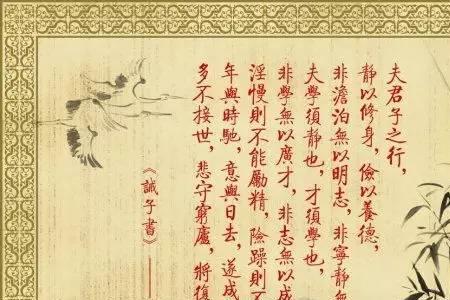 夫君子之行，
靜以修身，儉以養德，
非澹泊無以明志，非寧靜無
夫學須靜也，才須學也，
非學無以廣才，非志無以成
淫慢則不能勵精，險躁則不
年與時馳，意與日去，遂成
多不接世，悲守窮廬，將復
《誡子書》——